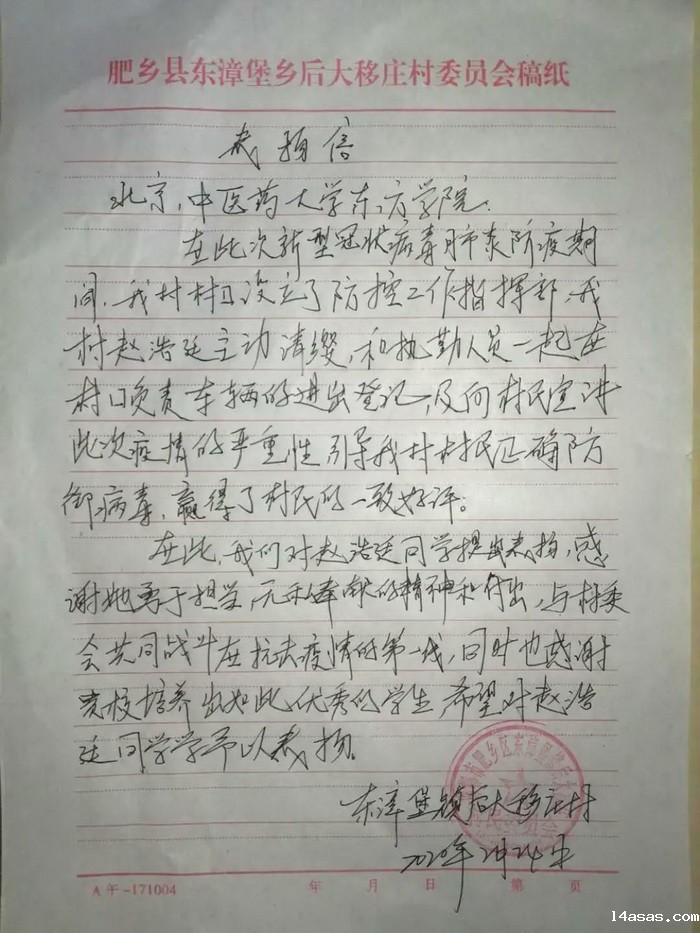 肥乡县东漳堡乡后大移庄村委员会稿纸
表扬信
北京,中医药大学东方学院.
在此次新型冠状病毒肺炎防疫期
间,我村村口设立了防控工作指挥部,我
村赵浩廷主动请缨,和执勤人员一起在
村口负责车辆的进出登记,及向村民宣讲
此次疫情的严重性引导我村村民正确防
御病毒,赢得了村民的一致好评。
在此,我们对赵浩廷同学提出表扬,感
谢她勇于担当,无私奉献的精神和付出,与村委
会共同战斗在抗击疫情的第一线,同时也感谢
贵校培养出如此优秀的学生 希望对赵浩
廷同学学予以表扬.
东漳堡镇后大移庄村
2020年2月24日
A午-171004 年 月 日 第 页
14asas.com